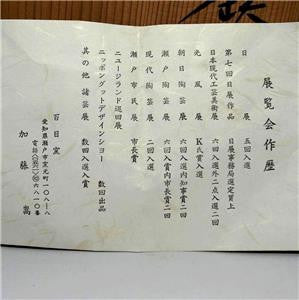 展覧会作歴
日展 五回入選
第七回日展作品 日展事務局選定買上
日本現代工芸美術展 六回入選外二点入選二回
光風展 K氏賞入選
朝日陶芸展 六回入選内知事賞二回
瀬戸陶芸展 六回入賞内市長賞二回
現代陶芸展 二回入選
瀬戸市民展 市長賞
ニュージランド巡回展
ニッポングッドデザインショー 数回出品
其の他諸芸展 数回入選入賞
百日窯
愛知県瀬戸市窯元町一〇八ノ八
六八一〇番
加藤嵩